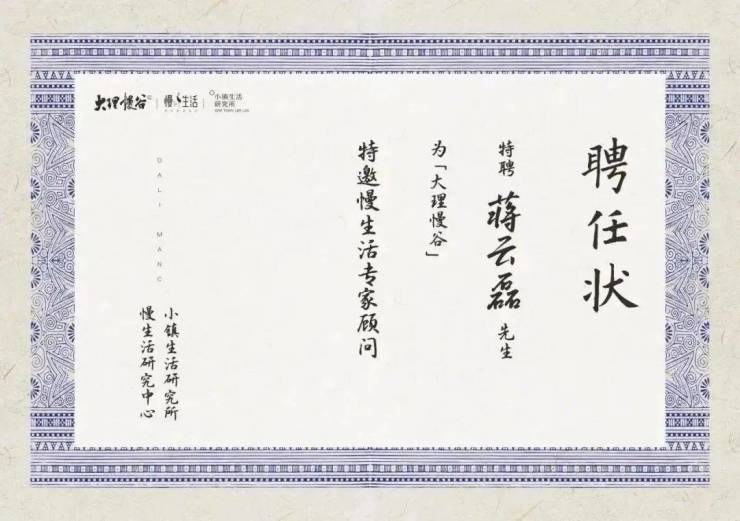 聘任状
特聘 蒋云磊 先生
为「大理慢谷」
特邀慢生活专家顾问
小镇生活研究所
慢生活研究中心
DALI MANG
大理慢谷
慢生活
小镇生活
研究所